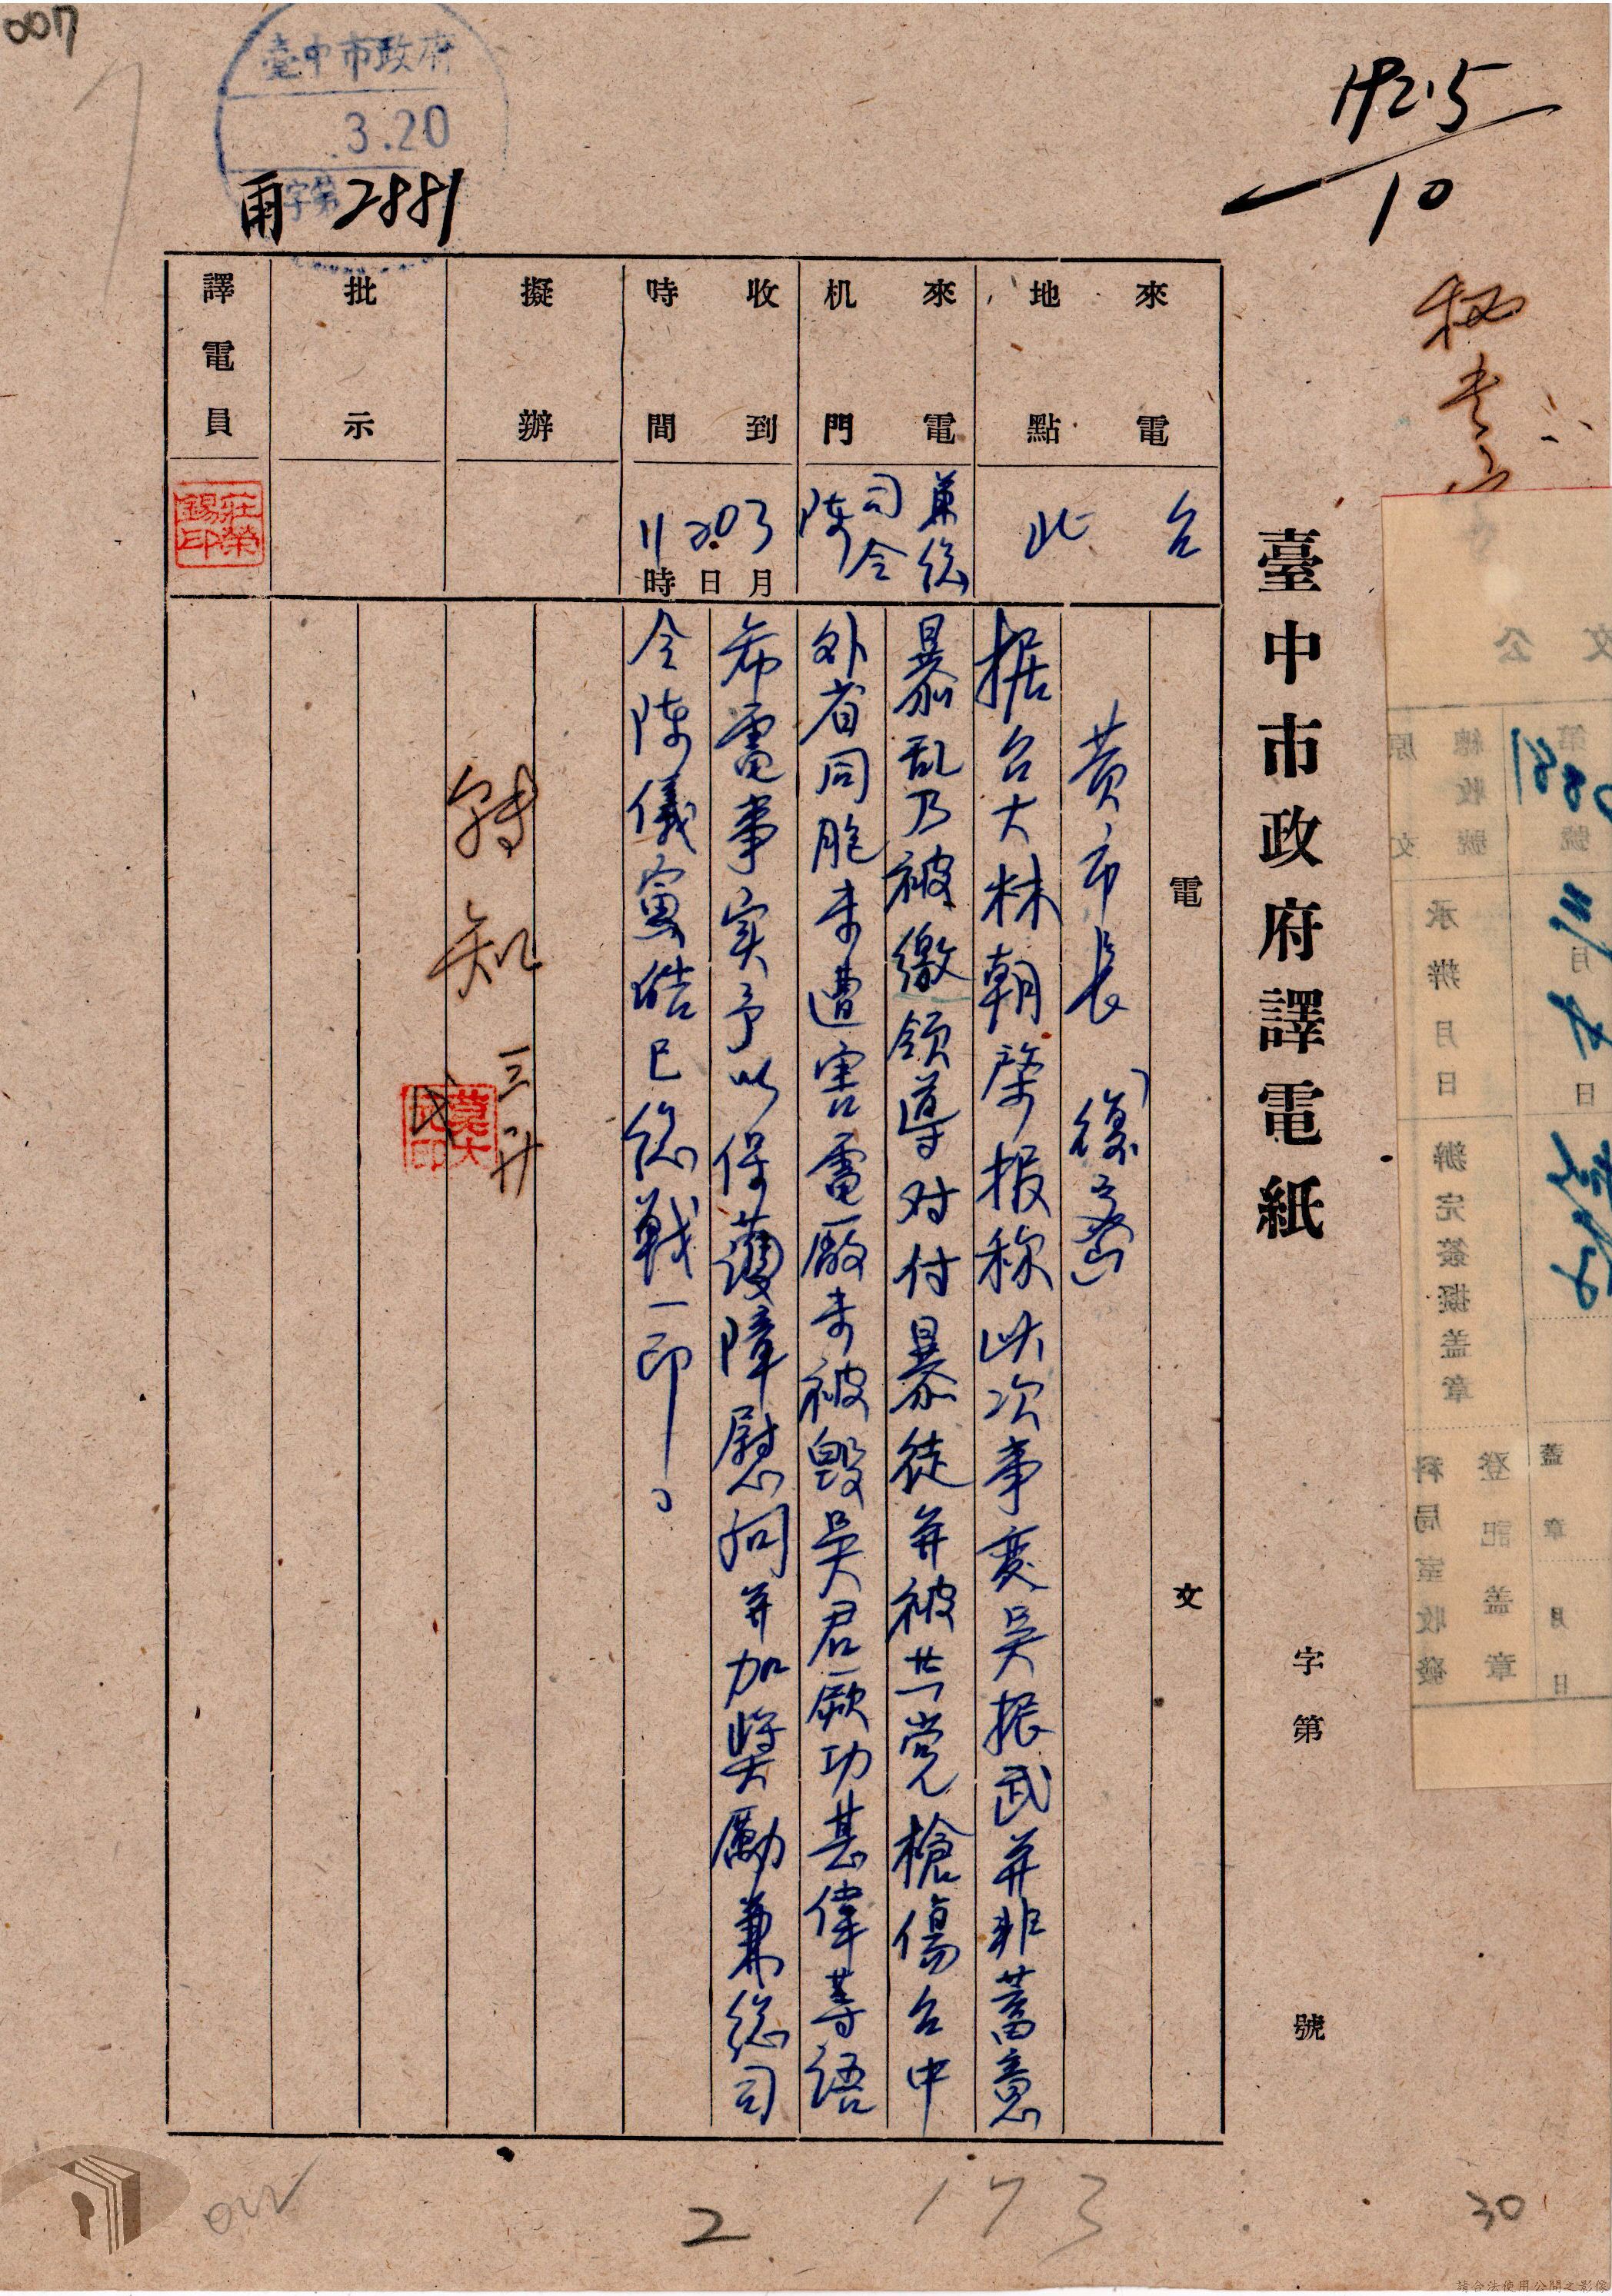 007
臺中市政府
3.20
字第
2881
10
臺中市政府譯電紙
字第 號
來電地點
台北
來電机門
兼總司令陳
收到時間
03月20日11時
擬辦
批示
譯電員
莊榮錫印
電文
黃市長(縵密)
据台大林朝棨报称此次事变吴振武并非蓄意
暴乱乃被繳領導对付暴徒并被共党槍傷台中
外省同胞未遭害電廠未被毁吴君厥功甚偉等語
希電事实予以保護障慰问并加獎勵兼總司
令陳儀寅皓巳總戰一印。
轉知 三 廿
公文
第 號
2881
總收號
原文
月 日
承辦月日
辦完簽擬蓋章
蓋章
月 日
登記蓋章
科局室收發
2
173
30
請合法使用公開之影像